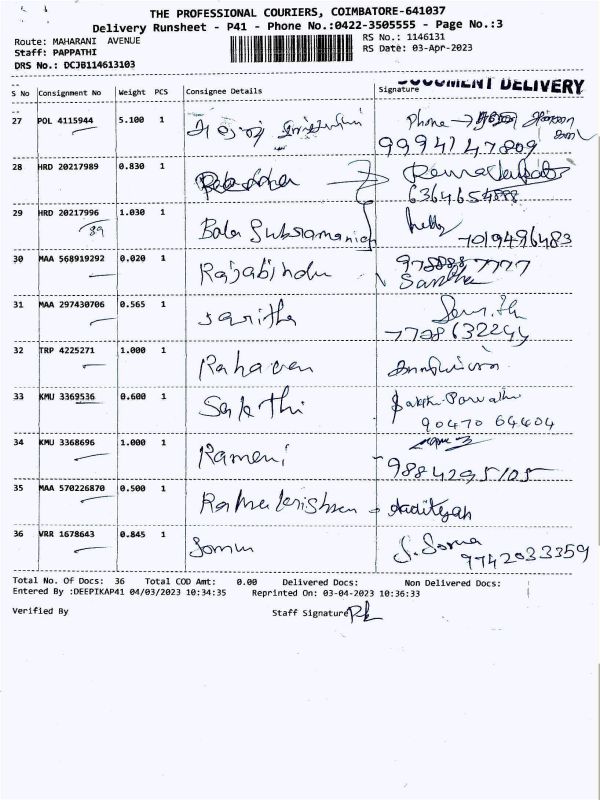 THE PROFESSIONAL COURIERS, COIMBATORE-641037
Delivery Runsheet - P41 - Phone No.:0422-3505555 - Page No.:3
Route: MAHARANI AVENUE
RS No.: 1146131
Staff: PAPPATHI
RS Date: 03-Apr-2023
DRS No.: DCJB114613103
DOCUMENT DELIVERY
S No Consignment No Weight PCS Consignee Details Signature
27 POL 4115944 5.100 1 Phone
9994147809
28 HRD 20217989 0.830 1
6364654888
29 HRD 20217996 1.030 1 Bala Subramanian
89 7019496483
30 MAA 568919292 0.020 1 Rajabindu
Santha
31 MAA 297430706 0.565 1 Saritha
7728632244
32 TRP 4225271 1.000 1 Rahaven
33 KMU 3369536 0.600 1 Sakthi Sakthi Parvathi
90470 64404
34 KMU 3368696 1.000 1 Rameni
9884295105
35 MAA 570226870 0.500 1 Ramakrishnan Aaditeyah
36 VRR 1678643 0.845 1 Somu S. Soma
9742033359
Total No. Of Docs: 36 Total COD Amt: 0.00 Delivered Docs: Non Delivered Docs:
Entered By :DEEPIKAP41 04/03/2023 10:34:35 Reprinted On: 03-04-2023 10:36:33
Verified By Staff Signature